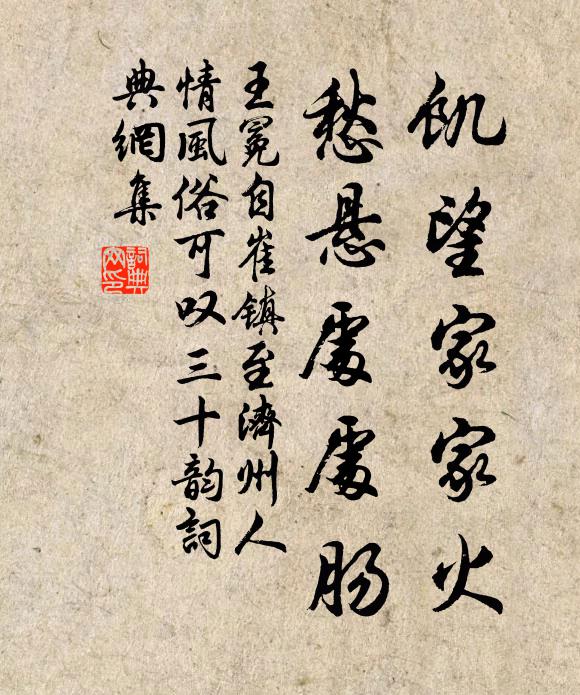 飢望家家火
愁悬處處肠
王冕自崔镇至濟州人
情風俗可叹三十韵詞
典網集
詞典網印